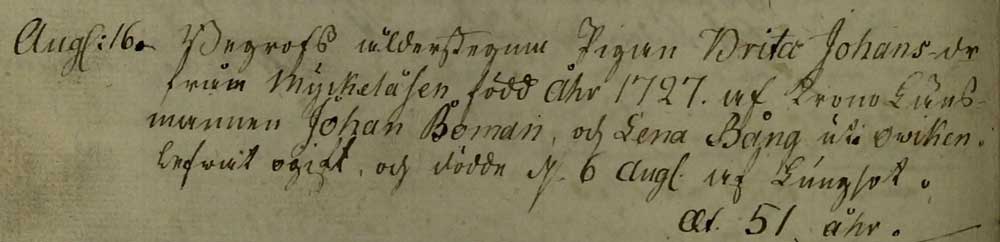 Augſ: 16. Begrofs ålderstegna Pigan Brita Johans-dr
från Myckelåsen född Åhr 1727. af Krono Läns-
mannen Johan Boman, och Lena Bång uti Owiken.
lefvat ogift, och dödde d. 6 Augſ. af Lungsot.
Æt. 51 åhr.